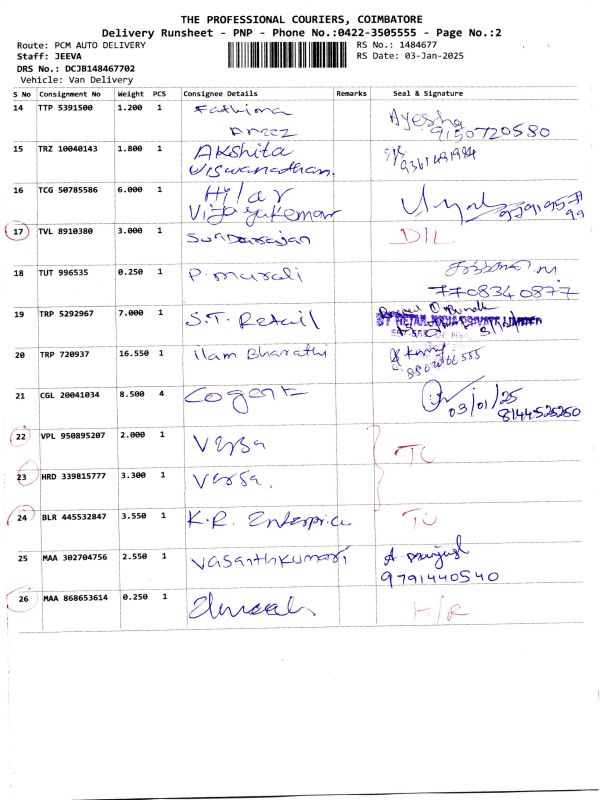 THE PROFESSIONAL COURIERS, COIMBATORE
Delivery Runsheet - PNP - Phone No.:0422-3505555 - Page No.:2
Route: PCM AUTO DELIVERY RS No.: 1484677
Staff: JEEVA RS Date: 03-Jan-2025
DRS No.: DCJB148467702
Vehicle: Van Delivery
S No Consignment No Weight PCS Consignee Details Remarks Seal & Signature
14 TTP 5391500 1.200 1 Fathima Ayesha
9150720580
15 TRZ 10040143 1.800 1 Akshita
Viswanathan. 9361491984
16 TCG 50785586 6.000 1
Vijayakumar
17 TVL 8910380 3.000 1 Sundarrajan D/L
18 TUT 996535 0.250 1 P. murali
7708340877
19 TRP 5292967 7.000 1 S.T. Retail
20 TRP 720937 16.550 1 ilam Bharathi
21 CGL 20041034 8.500 4 Cogent 03/01/25
8144525250
22 VPL 950895207 2.000 1 Versa
23 HRD 339815777 3.300 1 Versa.
24 BLR 445532847 3.550 1 K.R. Enterprice
25 MAA 302704756 2.550 1 Vasanthkumari
9791440540
26 MAA 868653614 0.250 1 H/R